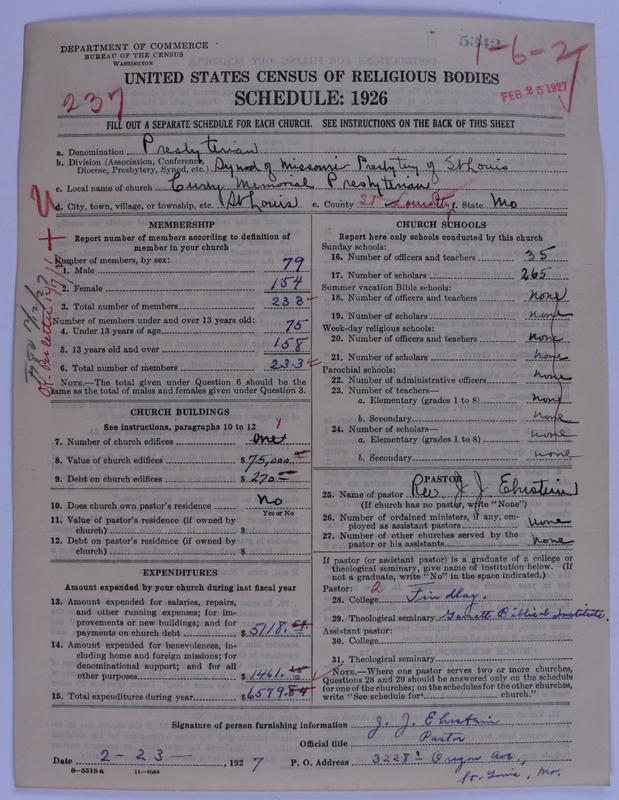 DEPARTMENT OF COMMERCE
BUREAU OF THE CENSUS
WASHINGTON
5342
1-6-27
FEB 25 1927
UNITED STATES CENSUS OF RELIGIOUS BODIES
237
SCHEDULE: 1926
FILL OUT A SEPARATE SCHEDULE FOR EACH CHURCH. SEE INSTRUCTIONS ON THE BACK OF THIS SHEET
a. Denomination Presbyterian
b. Division (Association, Conference, Diocese, Presbytery, Synod, etc.) Synod of Missouri Presbytery of St Louis
c. Local name of church Curby Memorial Presbyterian
d. City, town, village, or township, etc. St Louis e. County St Louis City f. State Mo
MEMBERSHIP
Report number of members according to definition of
member in your church
Number of members, by sex:
1. Male 79
2. Female 154
3. Total number of members 233
Number of members under and over 13 years old:
4. Under 13 years of age 75
5. 13 years old and over 158
6. Total number of members 233
NOTE.—The total given under Question 6 should be the
same as the total of males and females given under Question 3.
CHURCH BUILDINGS
See instructions, paragraphs 10 to 12
7. Number of church edifices one 1
8. Value of church edifices $75,000
9. Debt on church edifices $270
10. Does church own pastor's residence No
Yes or No
11. Value of pastor's residence (if owned by
church) $
12. Debt on pastor's residence (if owned by
church) $
EXPENDITURES
Amount expended by your church during last fiscal year
13. Amount expended for salaries, repairs,
and other running expenses; for im-
provements or new buildings; and for
payments on church debt $5118.
14. Amount expended for benevolences, in-
cluding home and foreign missions; for
denominational support; and for all
other purposes $1461.
15. Total expenditures during year $6579.84
CHURCH SCHOOLS
Report here only schools conducted by this church
Sunday schools:
16. Number of officers and teachers 35
17. Number of scholars 265
Summer vacation Bible schools:
18. Number of officers and teachers none
19. Number of scholars none
Week-day religious schools:
20. Number of officers and teachers none
21. Number of scholars none
Parochial schools:
22. Number of administrative officers none
23. Number of teachers—
a. Elementary (grades 1 to 8) none
b. Secondary none
24. Number of scholars—
a. Elementary (grades 1 to 8) none
b. Secondary none
PASTOR
25. Name of pastor Rev J J Ehrstein
(If church has no pastor, write "None")
26. Number of ordained ministers, if any, em-
ployed as assistant pastors none
27. Number of other churches served by the
pastor or his assistants none
If pastor (or assistant pastor) is a graduate of a college or
theological seminary, give name of institution below. (If
not a graduate, write "No" in the space indicated.)
Pastor: 2
28. College Findlay.
29. Theological seminary Garrett Biblical Institute.
Assistant pastor:
30. College
31. Theological seminary
NOTE.—Where one pastor serves two or more churches,
Questions 28 and 29 should be answered only on the schedule
for one of the churches; on the schedules for the other churches,
write "See schedule for church."
Signature of person furnishing information J. J. Ehrstein
Official title Pastor
Date 2-23- 1927 P. O. Address 3228a Oregon Ave.,
St. Louis, Mo.
8-5518a 11-9034